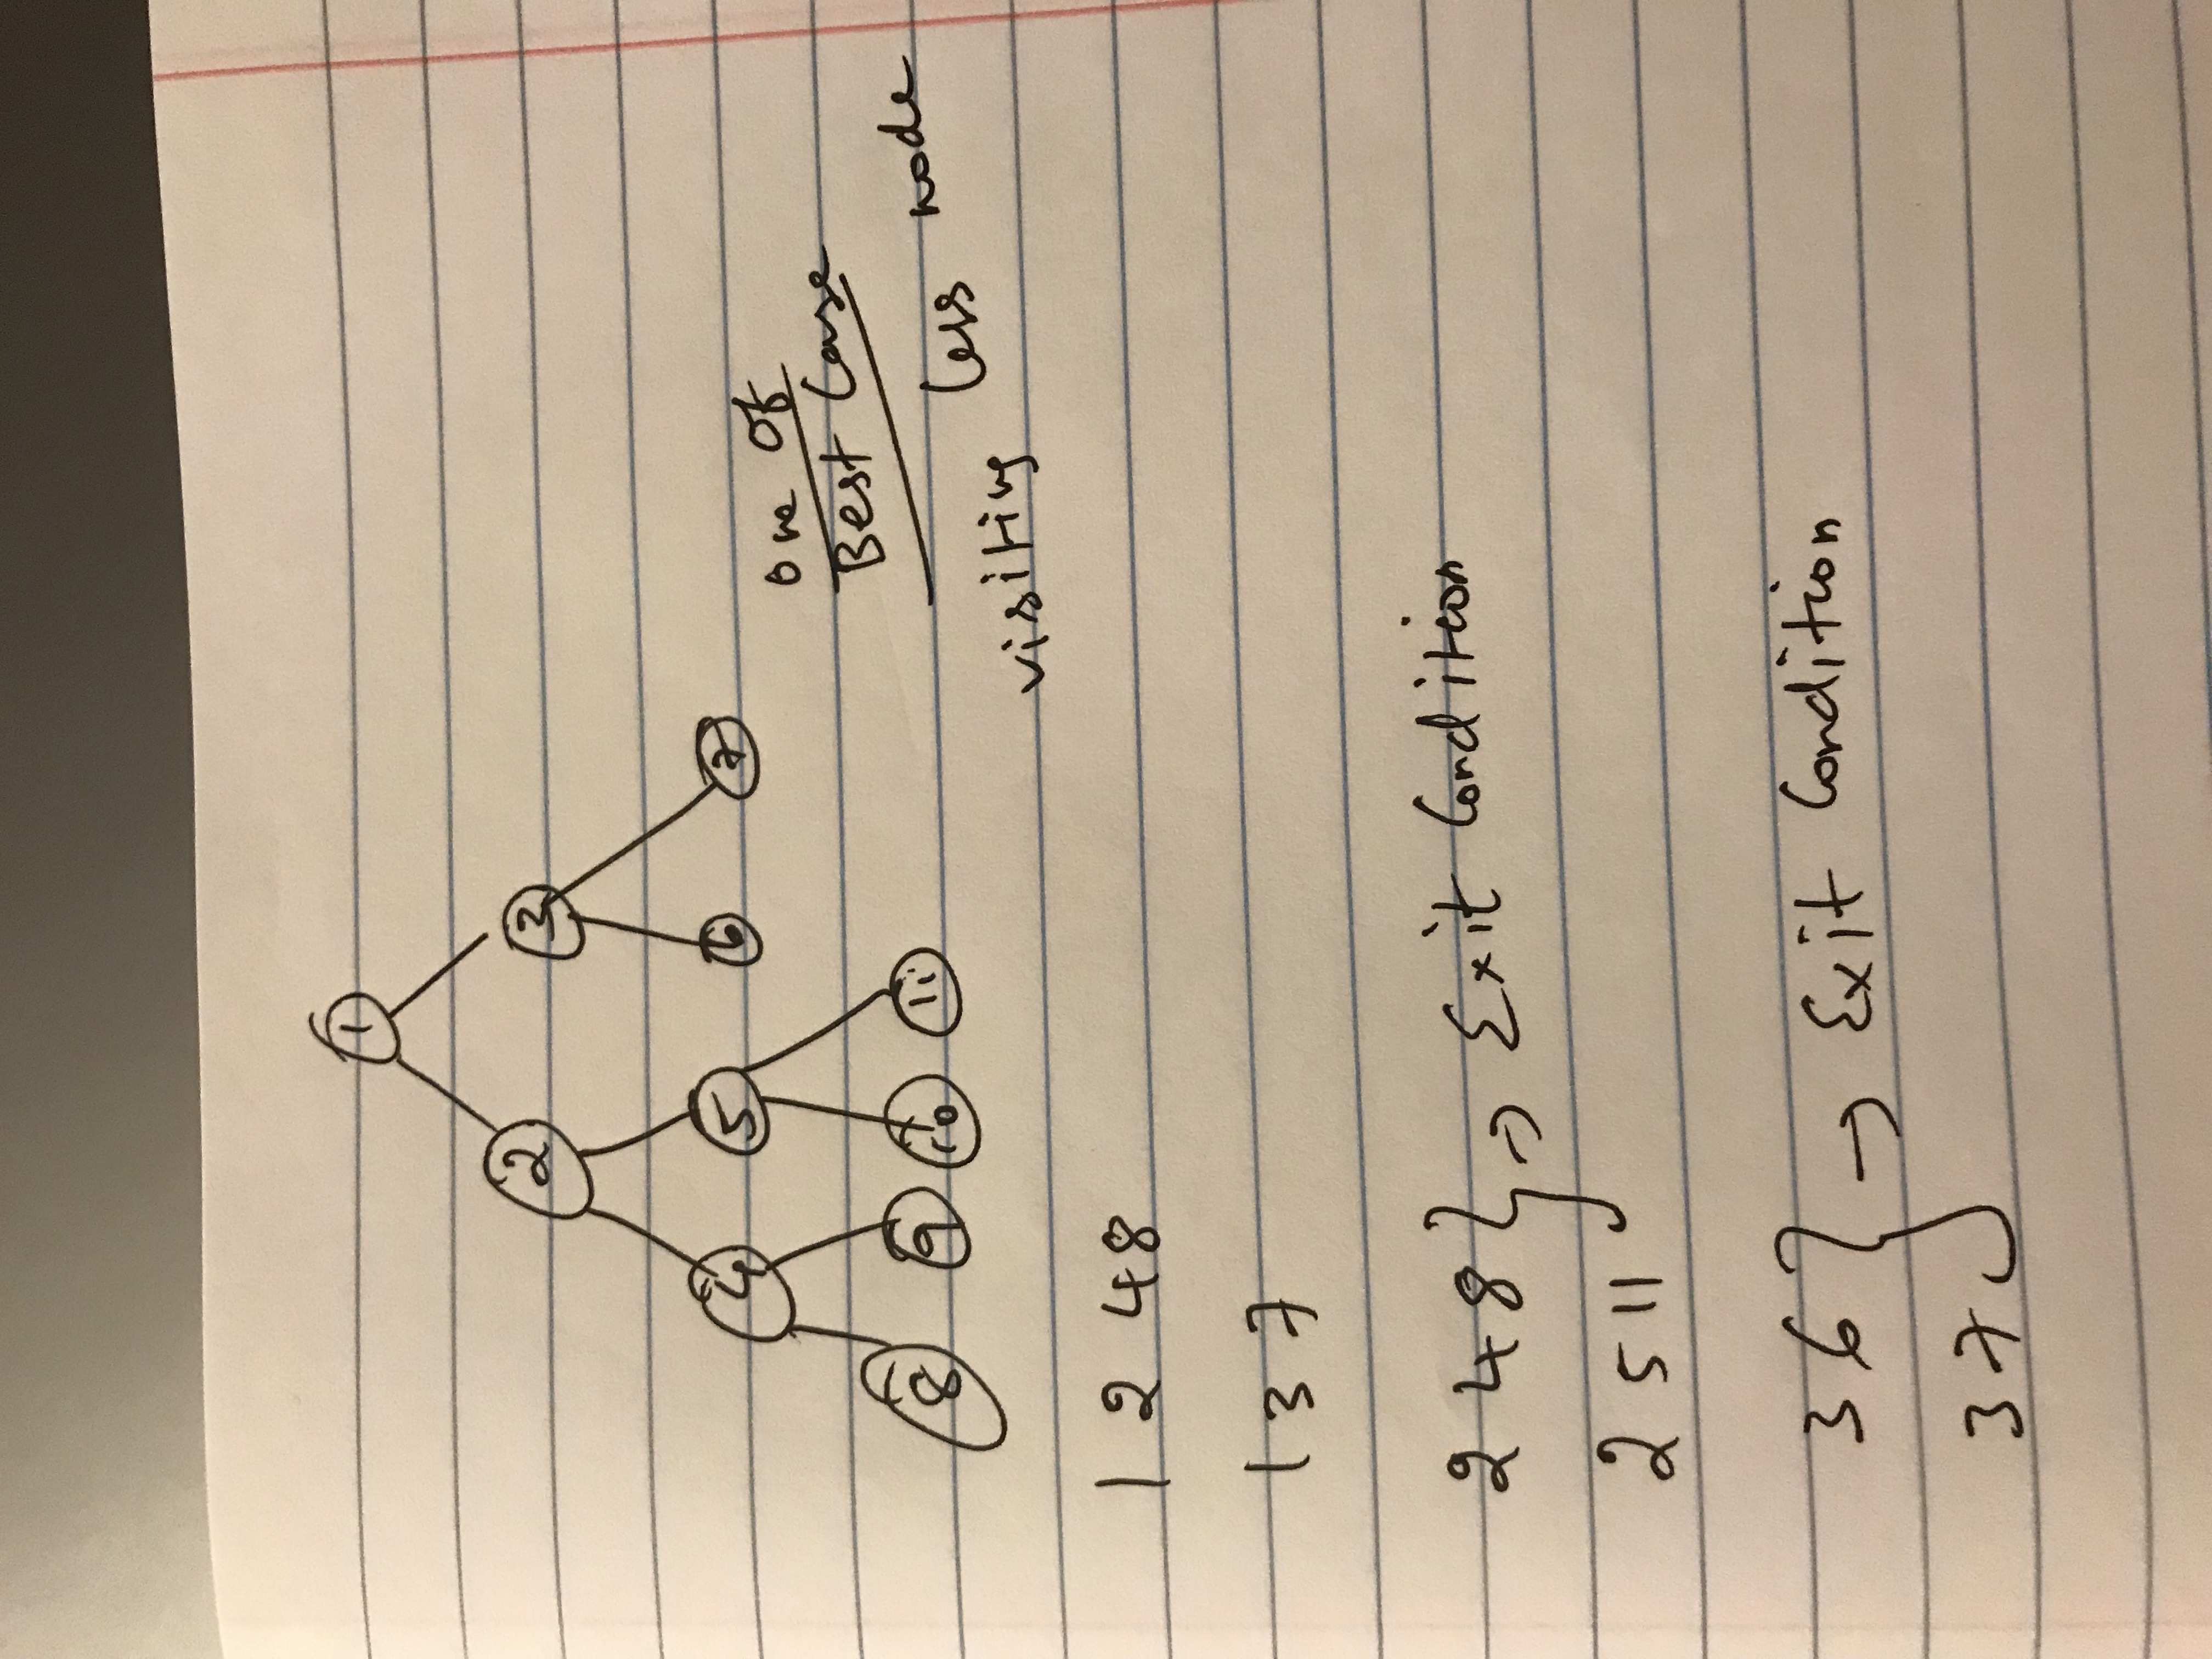 1
2 3
4 5 6 7
8 9 10 11
one of
Best Case
visiting less node
1 2 4 8
1 3 7
2 4 8
→ Exit Condition
2 5 11
3 6
→ Exit Condition
3 7